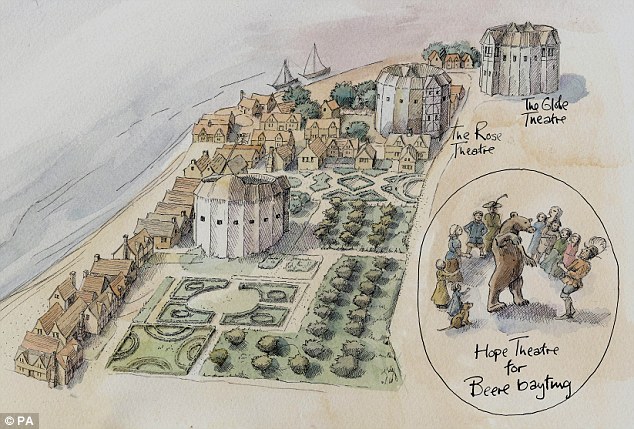 The Globe
Theatre
The Rose
Theatre
Hope Theatre
for
Beere bayting
© PA